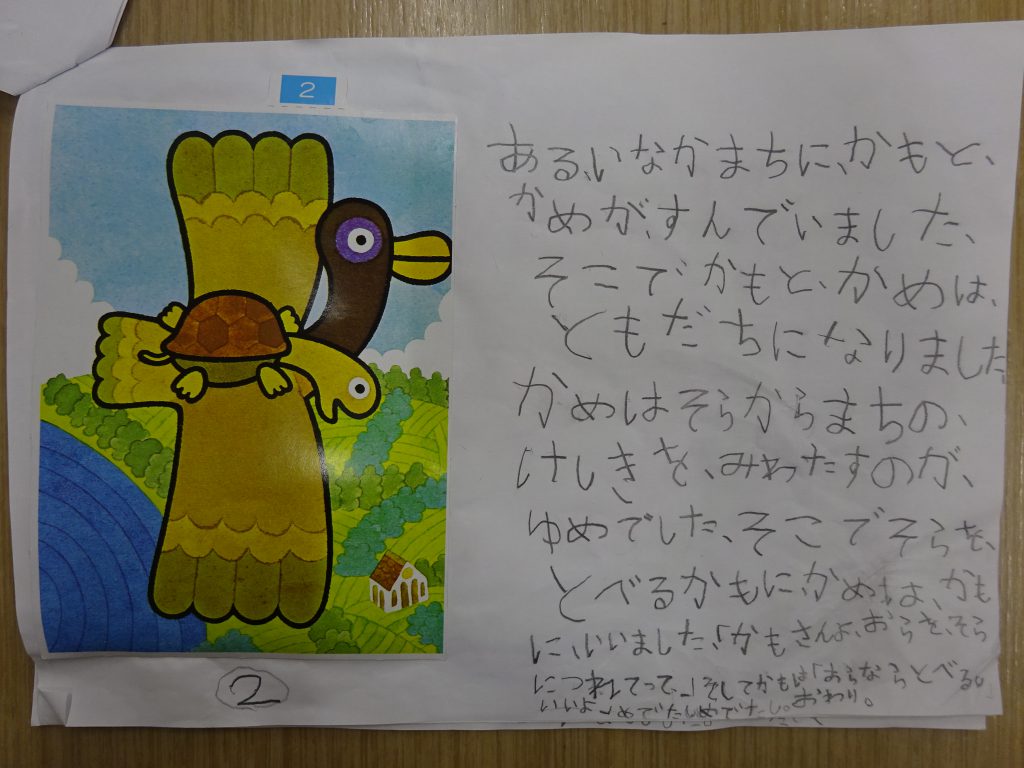 2
ある、いなかまちに、かもと、
かめが、すんでいました、
そこでかもと、かめは、
ともだちになりました
かめはそらからまちの、
けしきを、みわたすのが、
ゆめでした、そこでそらを、
とべるかもにかめは、かも
に、いいました、「かもさんよ、おらを、そら
につれてって、」そしてかもは「おらならとべる。」
いいよ、めでたしめでたし。おわり。
2